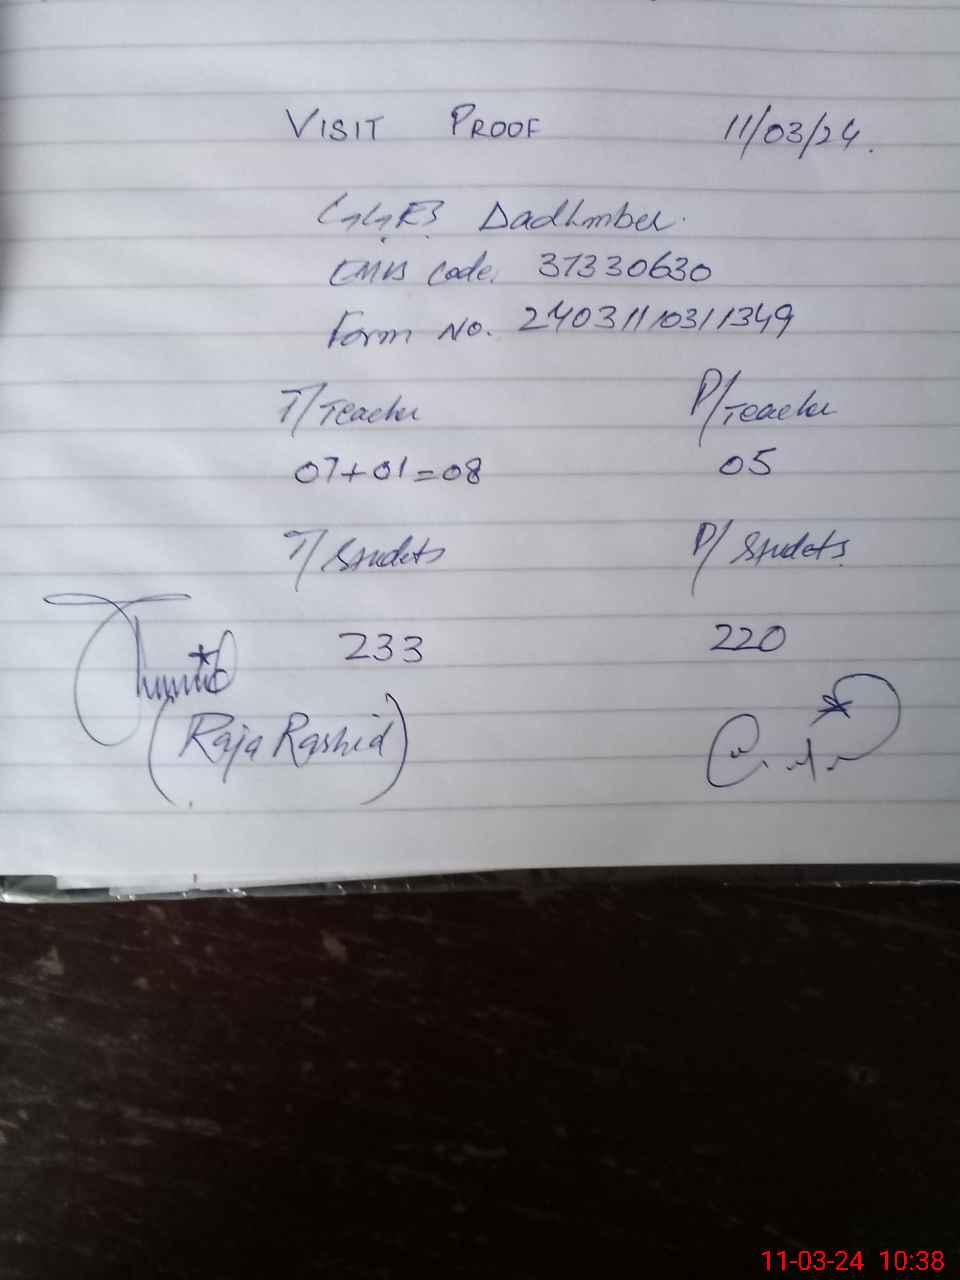 VISIT PROOF 11/03/24.
GGES Dadhmber.
EMIS Code. 37330630
Form No. 24031110311349
T/Teacher P/Teacher
07+01=08 05
T/Studets P/Studets
233 220
(Raja Rashid)
11-03-24 10:38